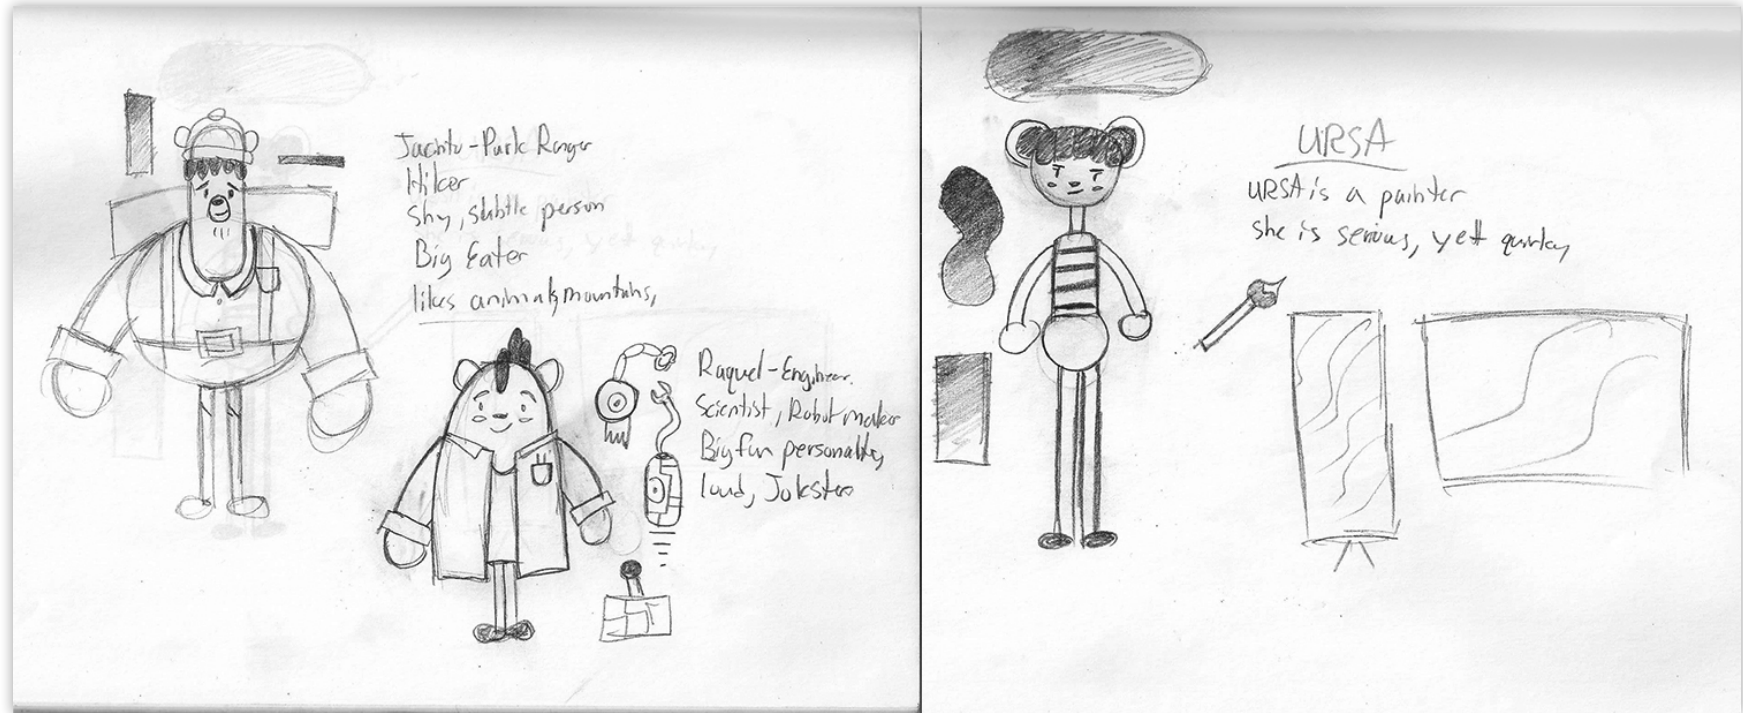 Jacinto - Park Ranger
Hiker
Shy, subtle person
Big Eater
likes animals, mountains,
Raquel - Engineer.
Scientist, Robot maker
Big fun personality
loud, Jokster
URSA
URSA is a painter
she is serious, yet quirky,